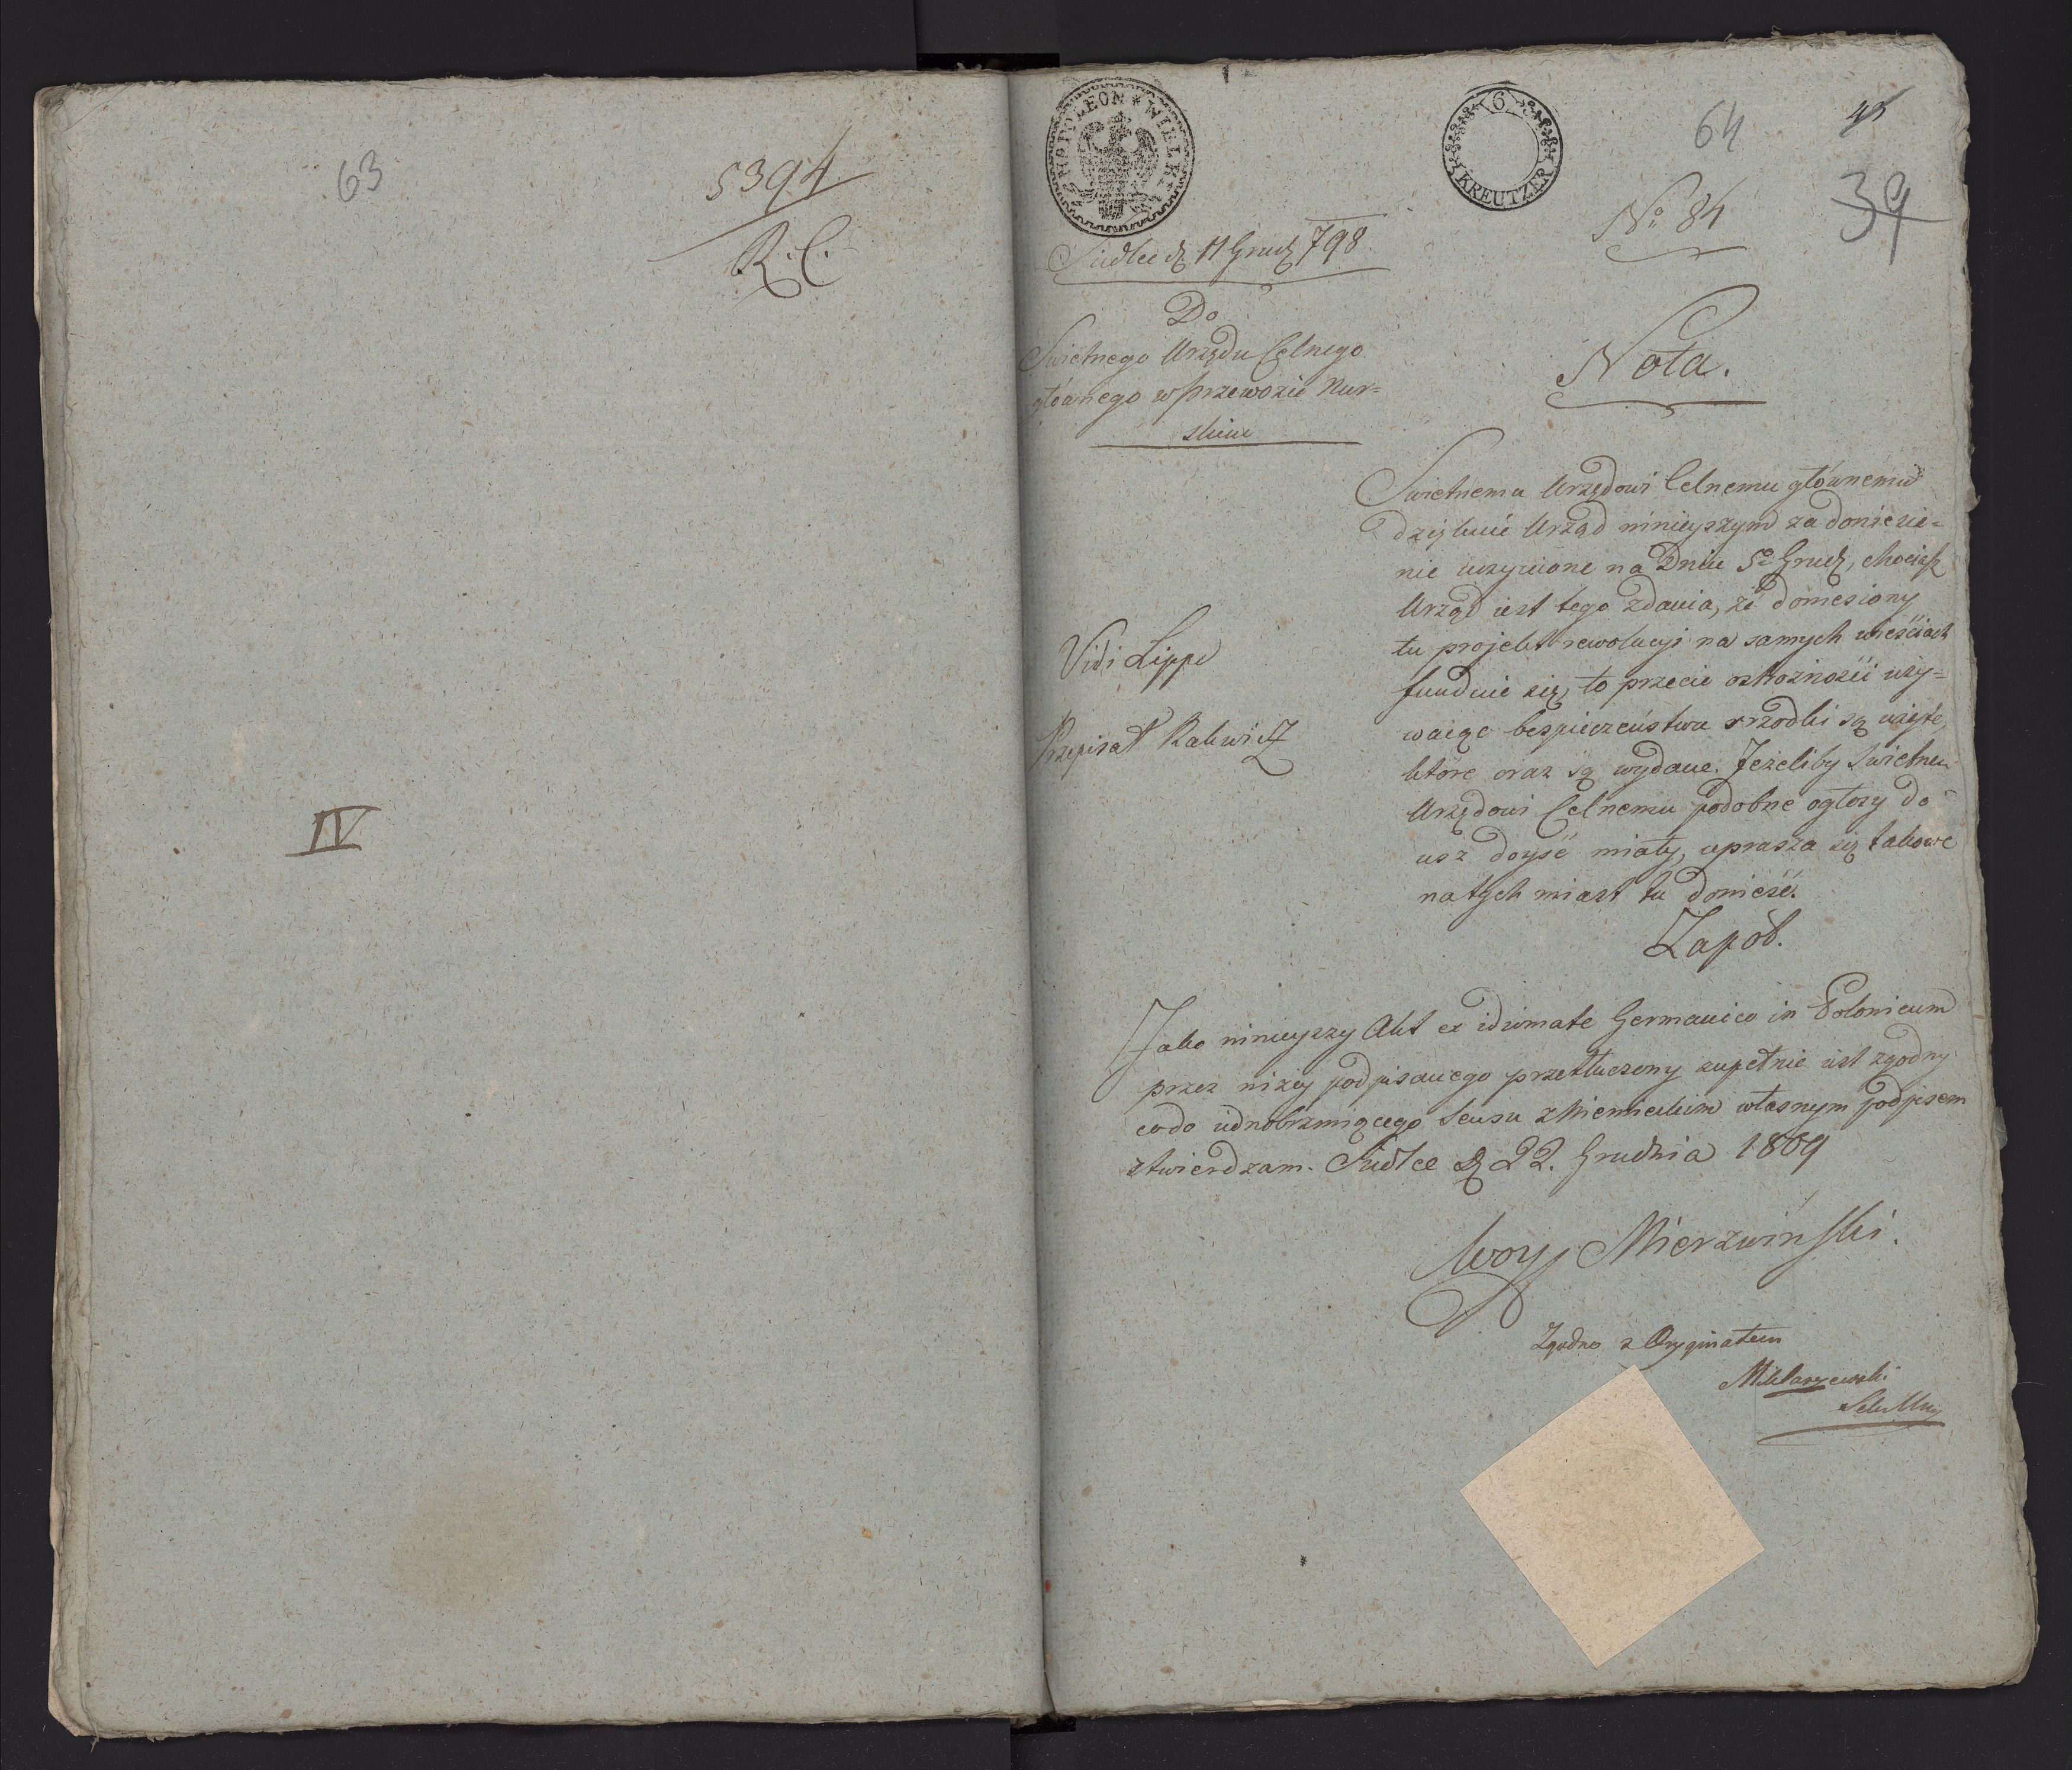 63
5394
R. C.
IV
NAPOLEON * WIELKI
6
KREUTZER
64
39
No 84
Siedlce d. 11 Grud. 798.
Do
Swietnego Urzędu Celnego
głównego w przewozie Nur=
skim
Nota.
Swietnemu Urzędowi Celnemu głównemu
dziękuie Urząd ninieyszym za doniesie=
nie uczynione na Dniu 5o Grud, chociasz
Urząd iest tego zdania, że doniesiony
tu projekt rewolucyi na samych wieściach
funduie się, to przecie ostrożności uży=
waiąc bespieczeństwa srzodki są użyte,
które oraz są wydane. Jeżeliby Swietnemu
Urzędowi Celnemu podobne ogłosy do
usz doyść miały, uprasza się takowe
natych miast tu donieść.
Zapób.
Vidi Lippe
Przepisał Rakwicz
Jako ninieyszy Akt ex idiomate Germanico in Polonicum
przez niżey podpisanego przetłuczony zupełnie iest zgodny
codo iednobrzmiącego Sensu z Niemieckim własnym podpisem
stwierdzam. Siedlce d. 22. Grudnia 1809
Woy Mierzwiński.
Zgodno z Oryginałem
Mlekarzewski